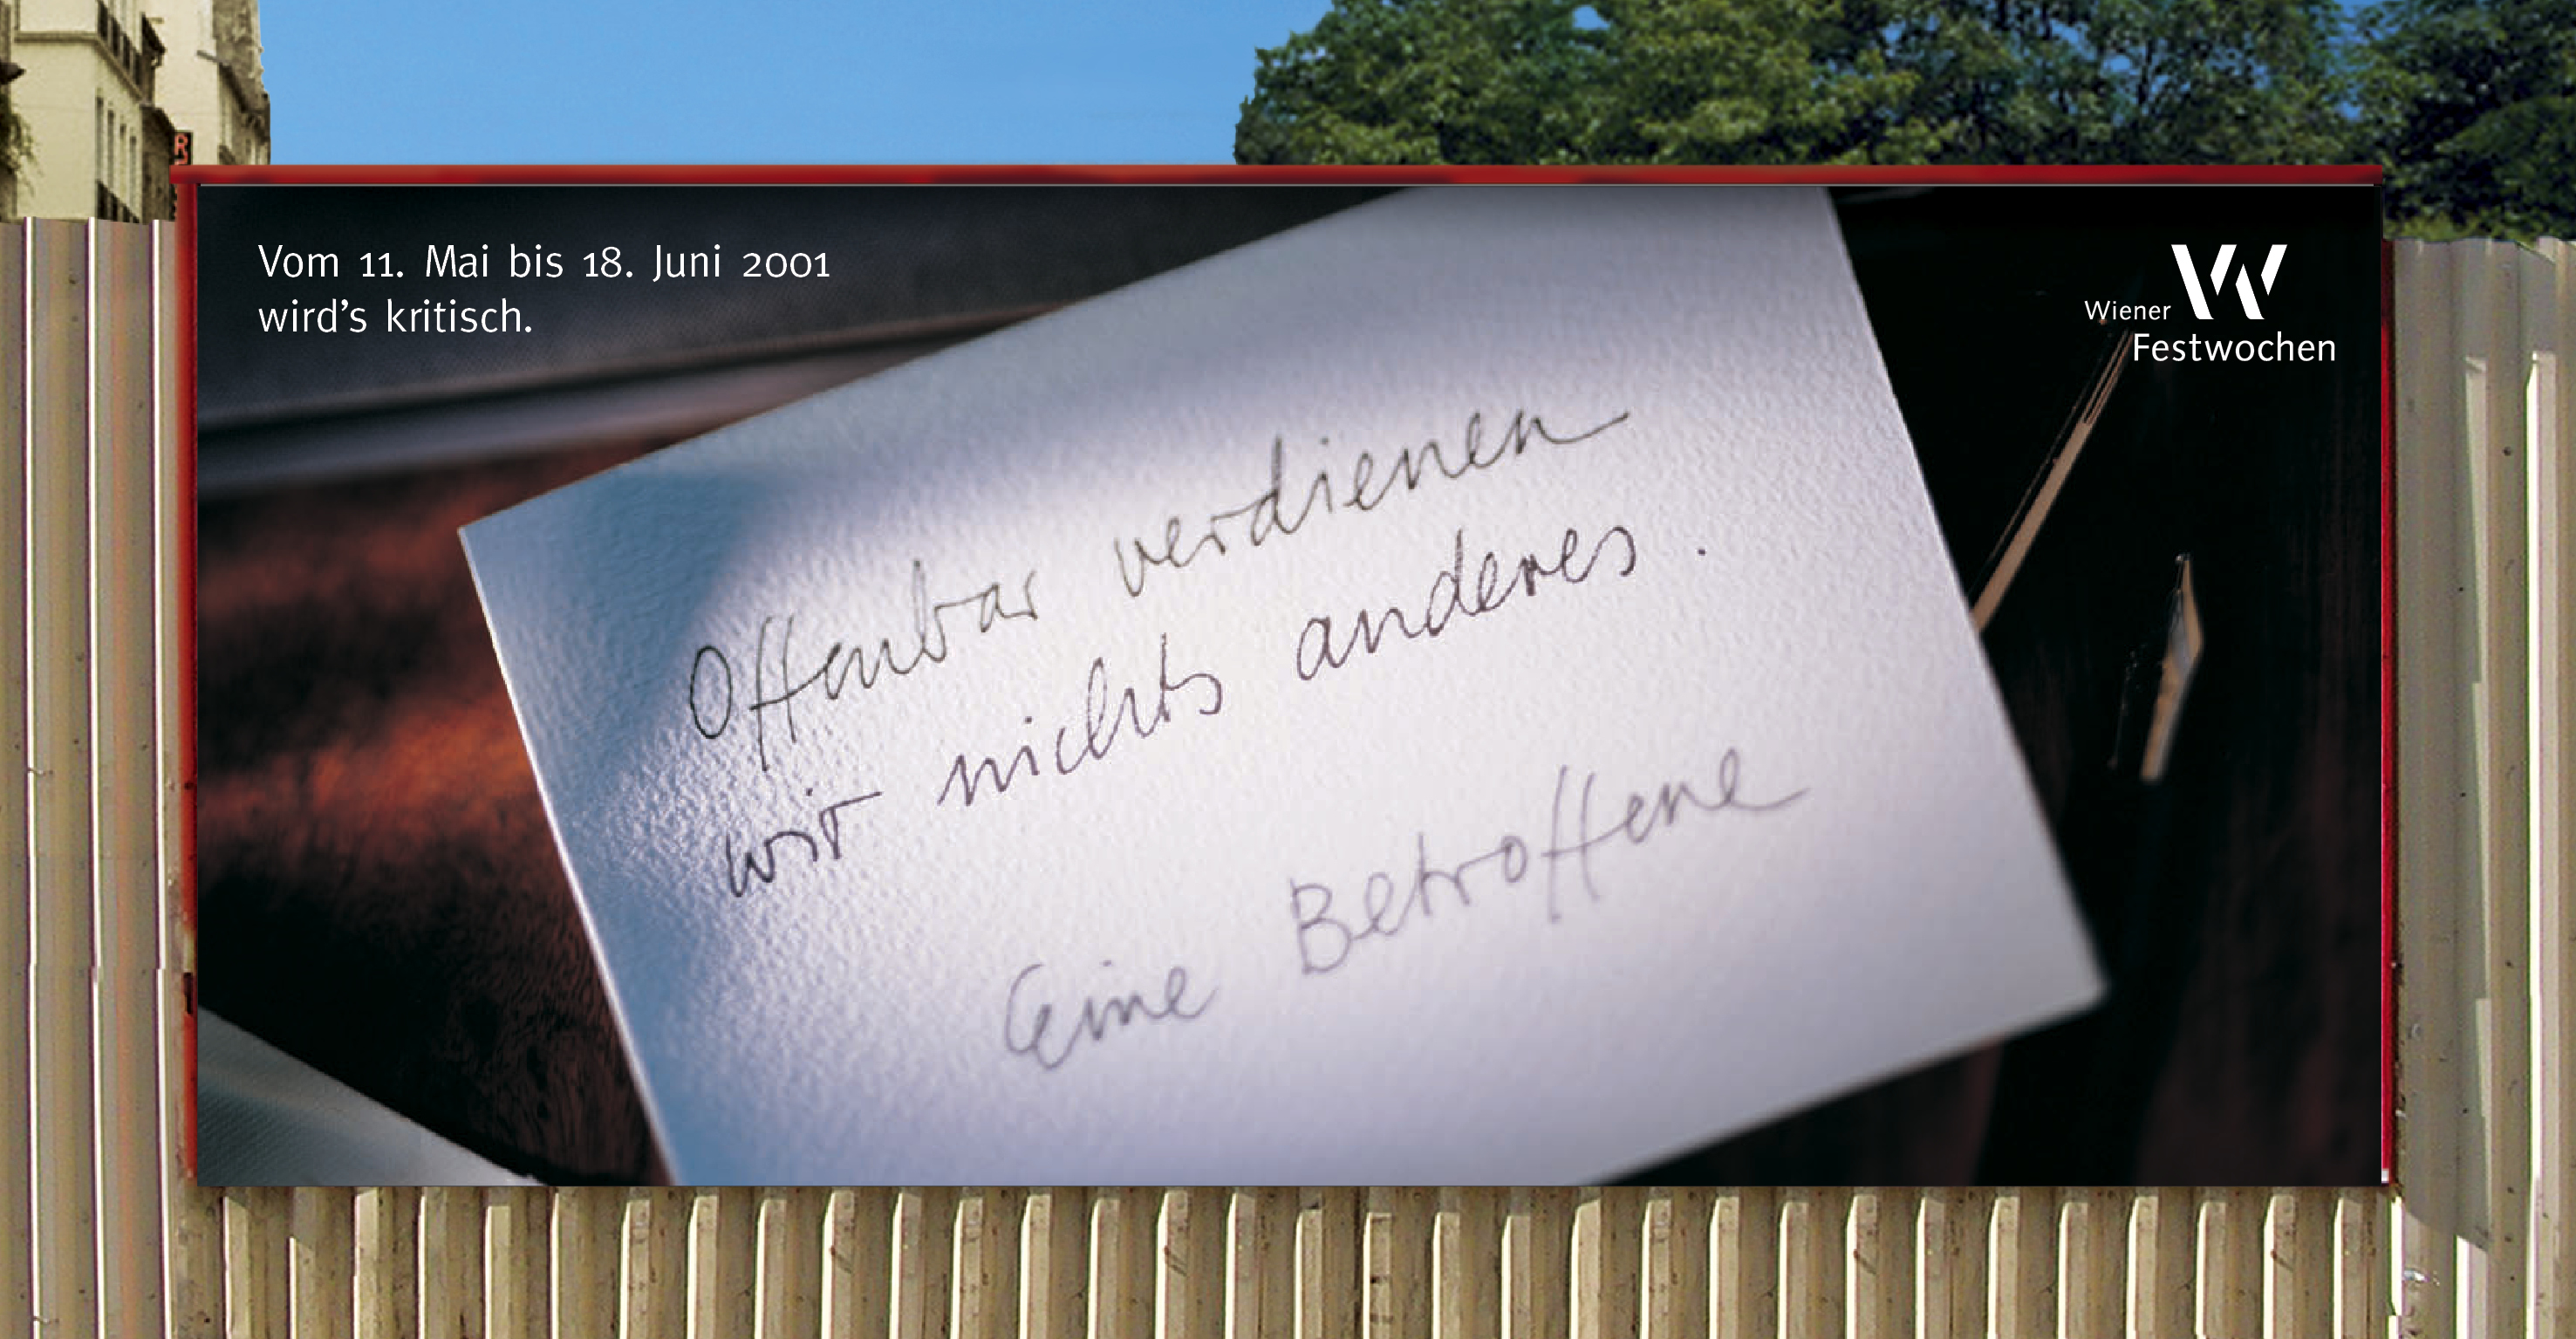 R
Vom 11. Mai bis 18. Juni 2001
wird's kritisch.
Wiener
Festwochen
Offenbar verdienen
wir nichts anderes.
Eine Betroffene